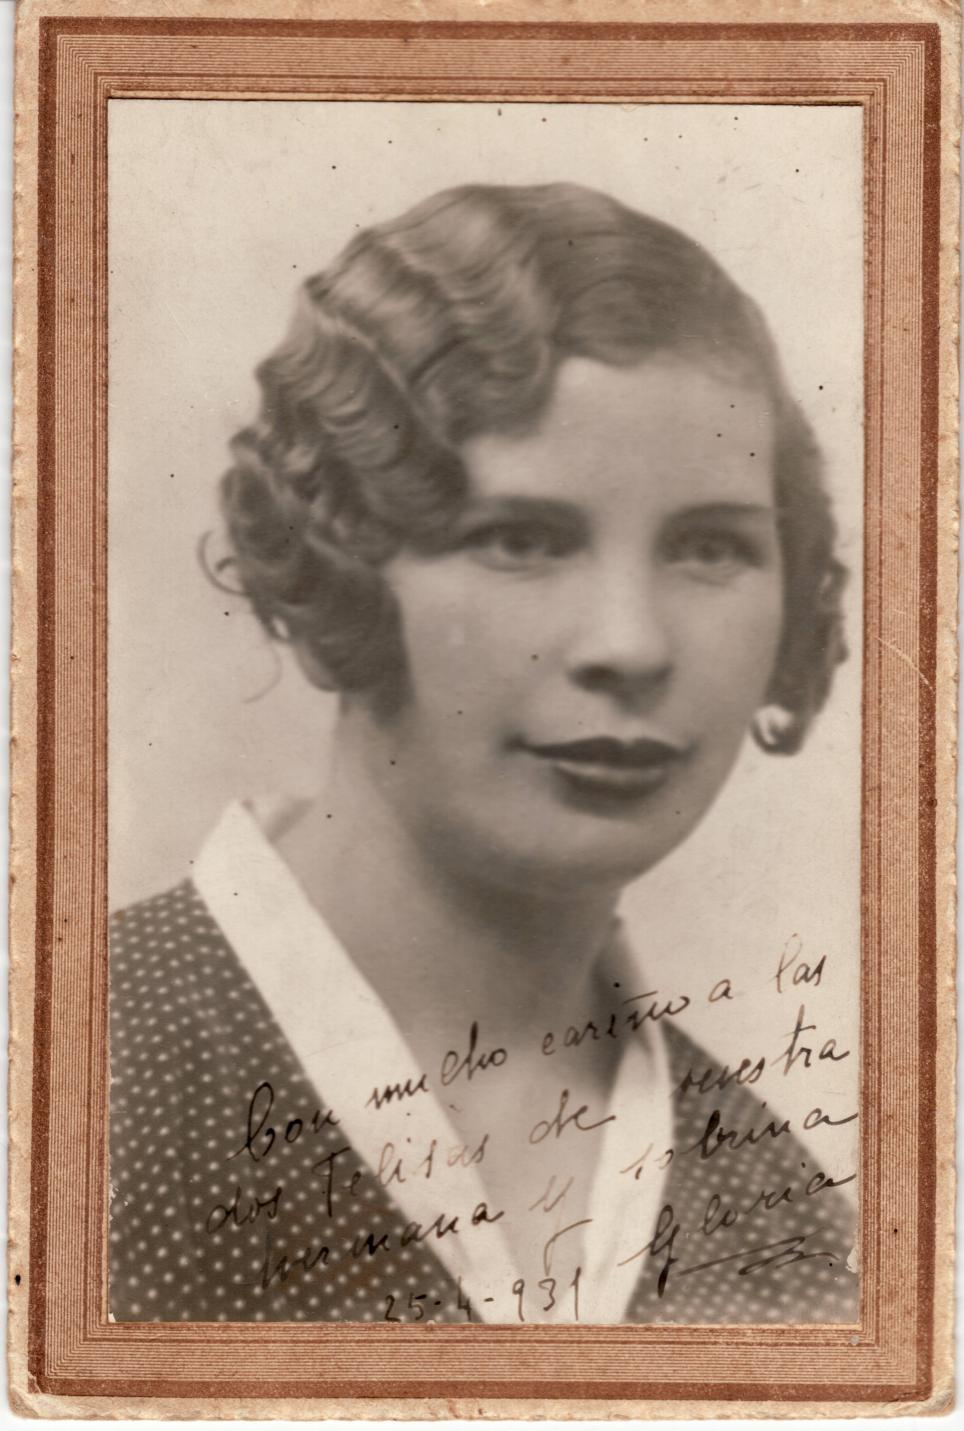 Con mucho cariño a las
dos Felisas de vuestra
hermana y sobrina
Gloria
25-4-931